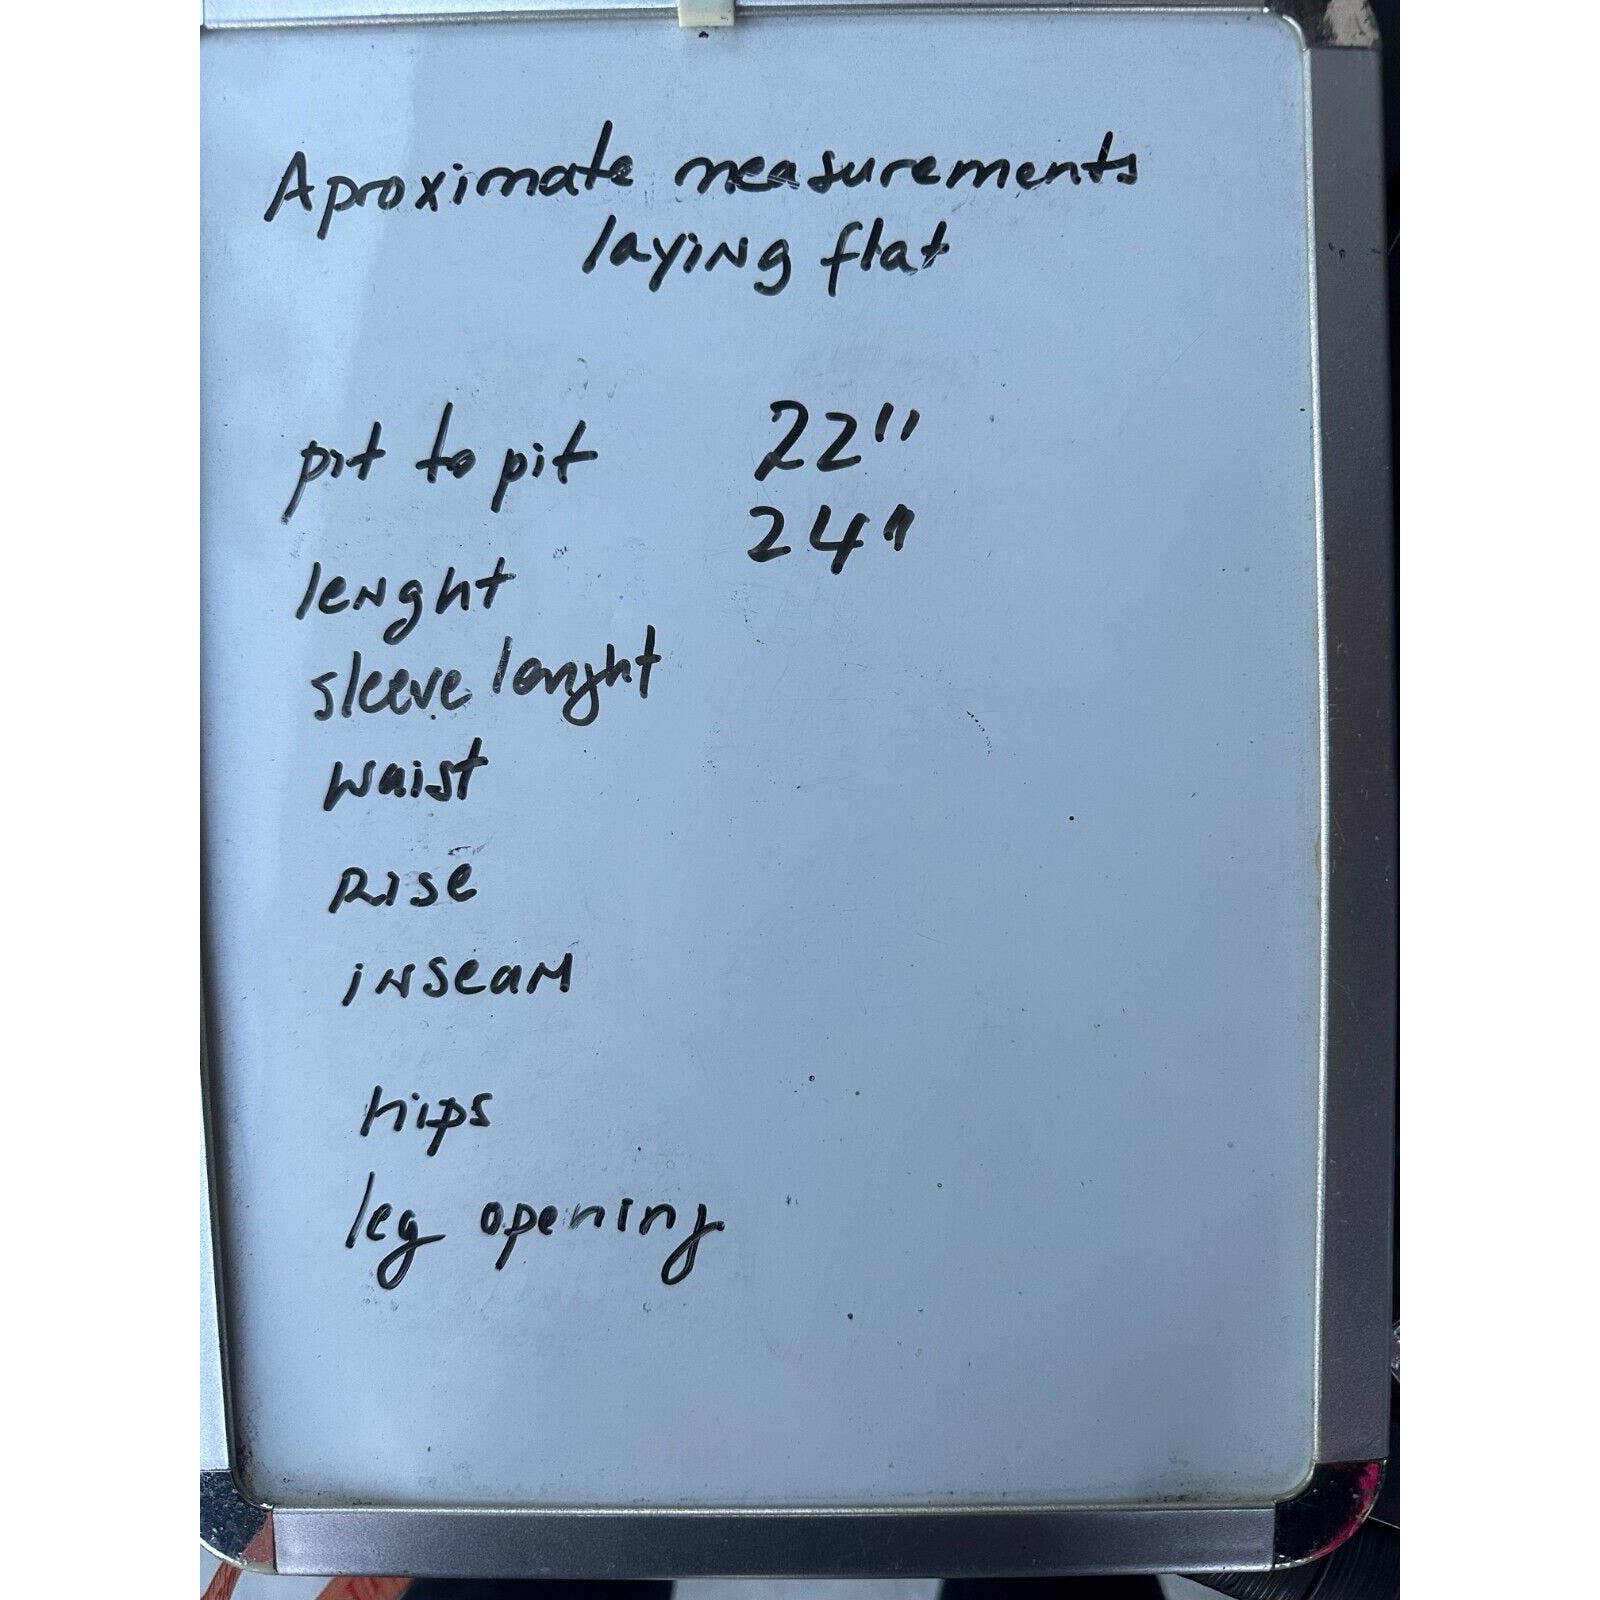 Aproximate measurements
laying flat
pit to pit 22"
24"
lenght
sleeve lenght
waist
Rise
inseam
hips
leg opening